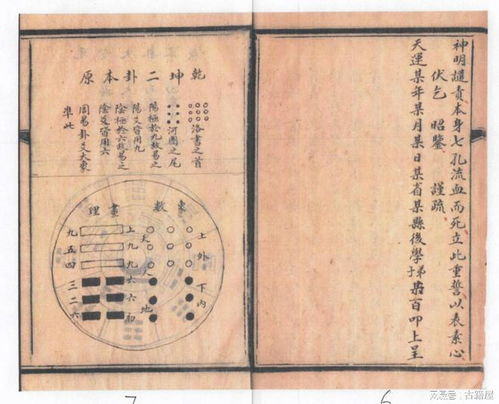 神明譴責本身七孔流血而死立此重誓以表素心
伏乞 昭鑒 謹疏
天運某年某月某日某省某縣後學某百叩上呈
乾坤二卦本原
洛書之首
河圖之尾
陽極於九故易之
陽爻皆用九
陰極於六故易之
陰爻皆用六
周易卦爻大象
準此
象數
畫理
上外
下內
天
人
地
上九九六六初
九五四三二六
7
6
搜狐号@古籍屋